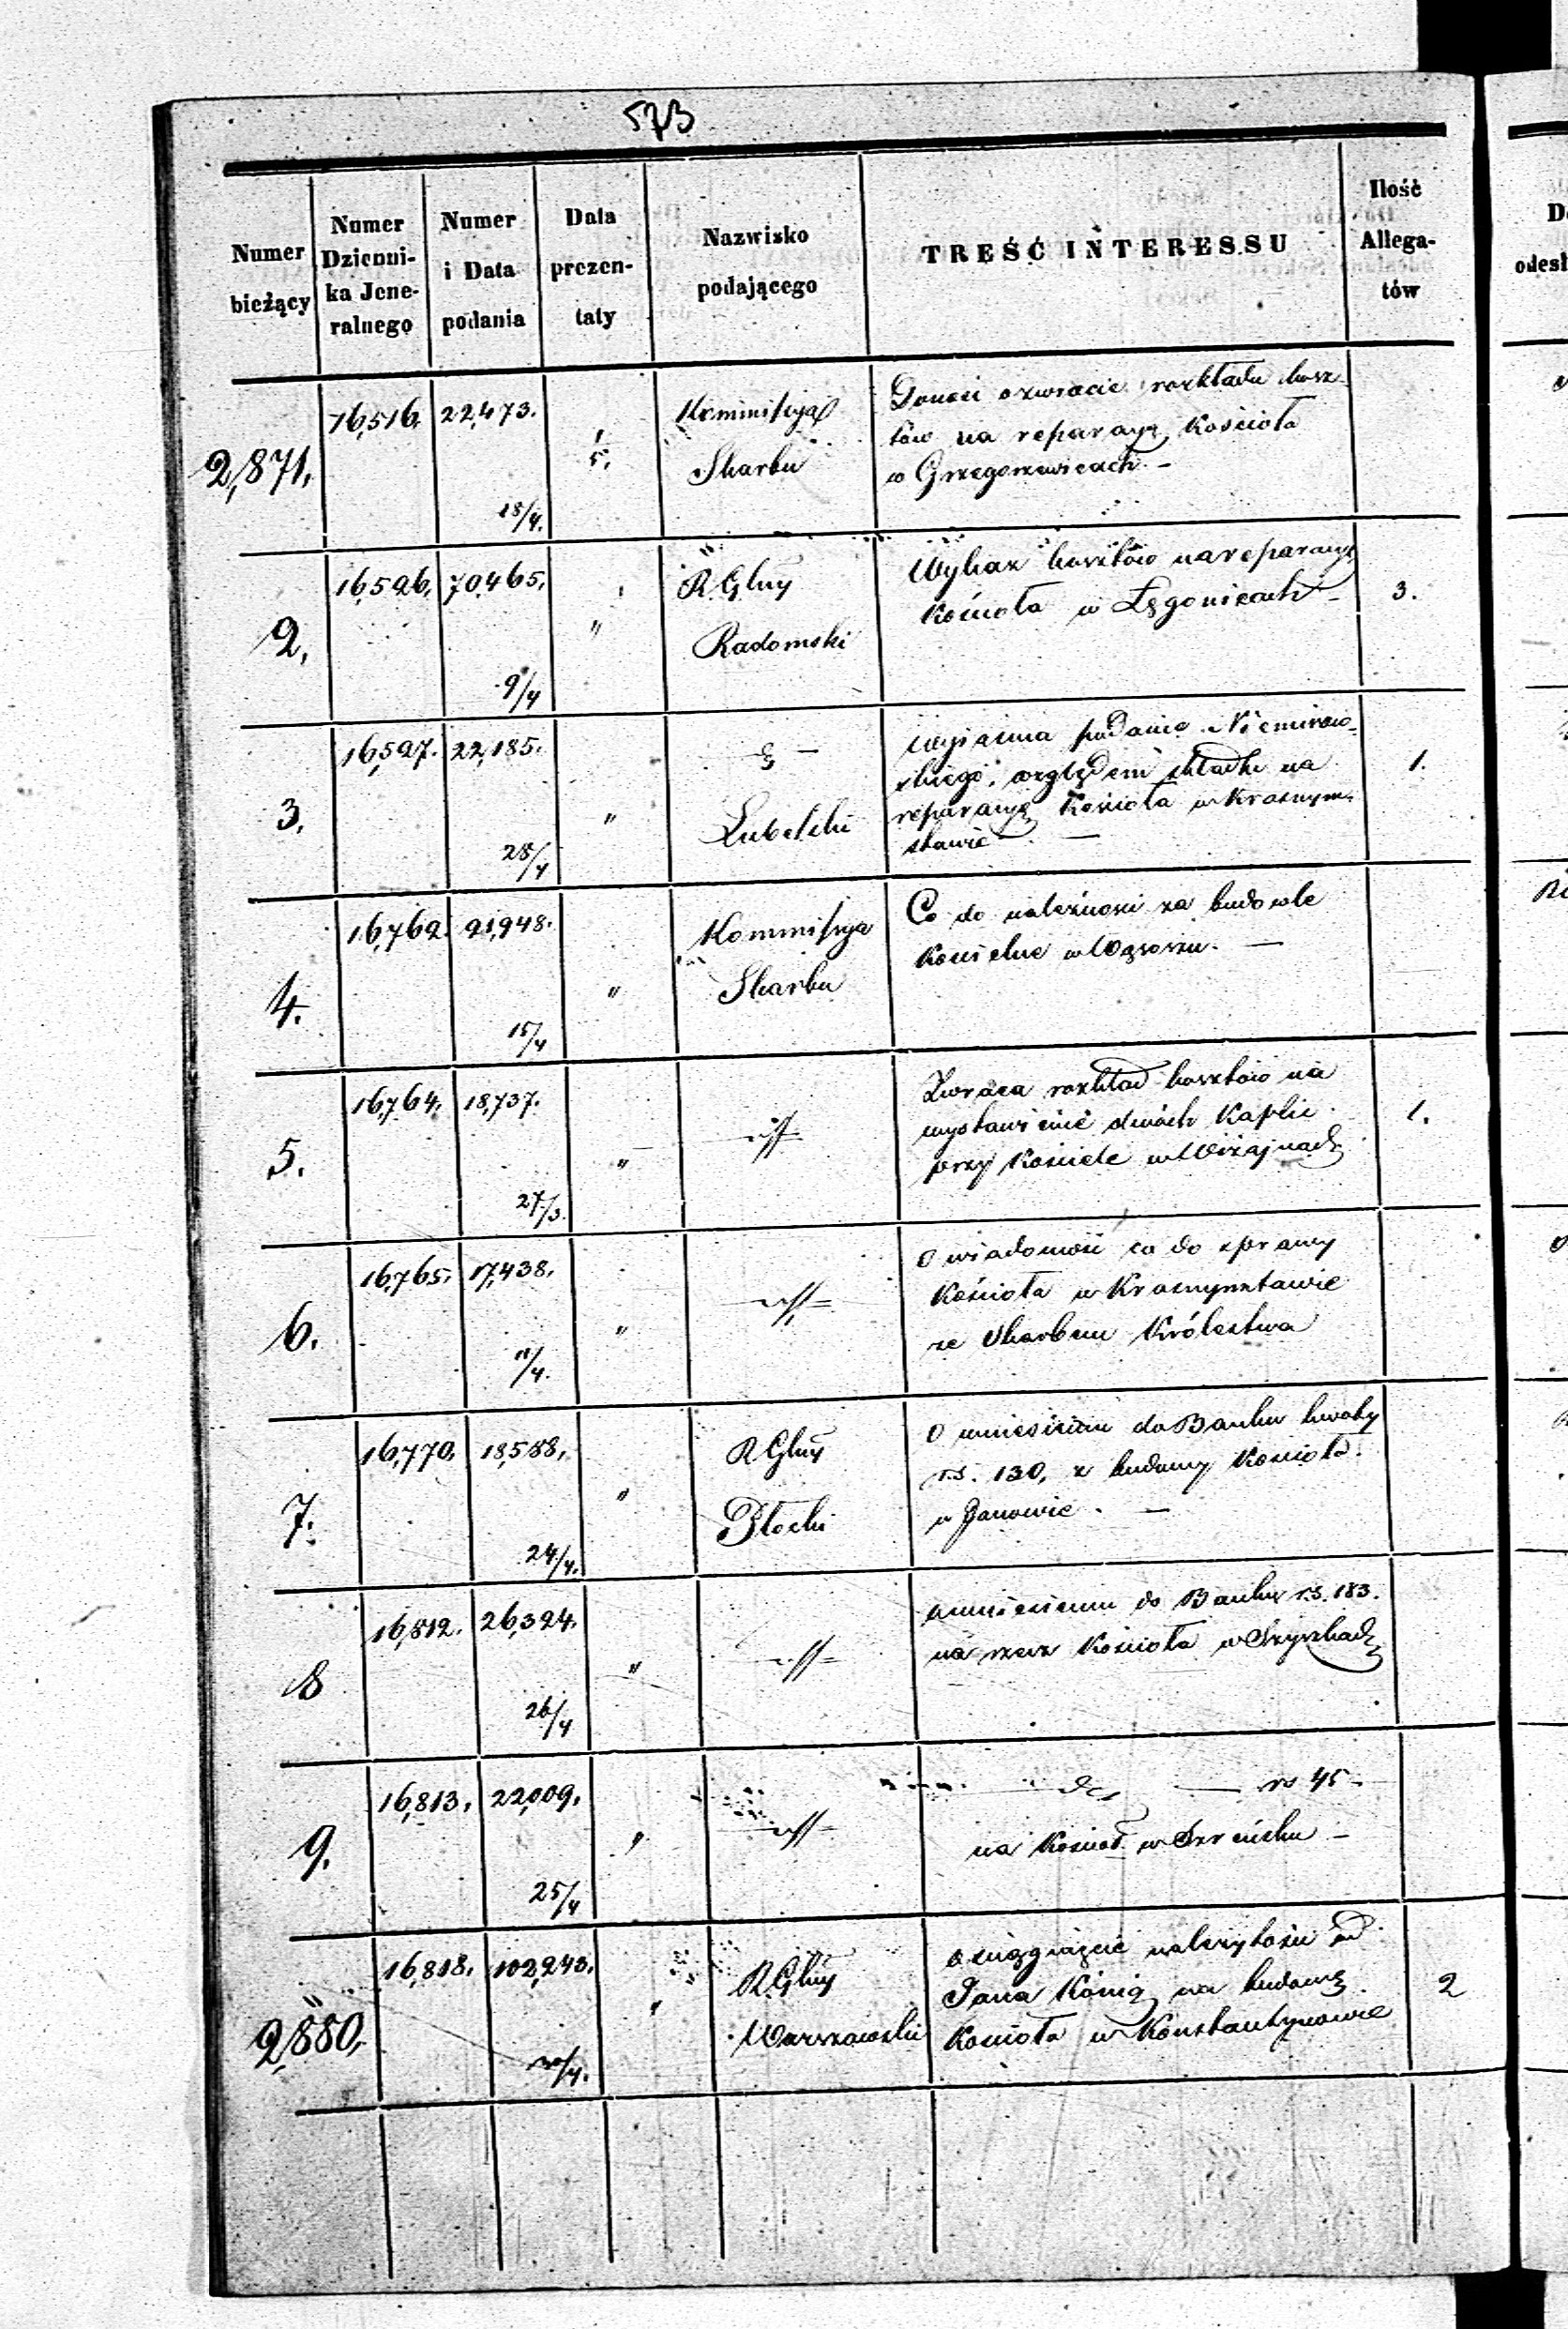 573
Numer bieżący | Numer Dzienni-ka Jene-ralnego | Numer i Data podania | Data prezen-taty | Nazwisko podającego | TREŚĆ INTERESSU | Ilość Allega-tów
2,871. | 16,516. | 22,473. 18/4. | 1/5. | Kommissyja Skarbu
Donosi o zwrocie rozkładu kosz-
tów na reparacyę Kościoła
w Grzegorzewicach. –
2. | 16,526. | 70,465. 9/4 | " | R. Glny Radomski | 3.
Wykaz kosztów na reparacyę
Kościoła w Łęgonicach –
3. | 16,527. | 22,185. 28/4 | " | – Lubelski | 1.
Wyjaśnia podanie Niemirow-
skiego, względem składki na
reparacyę Kościoła w Krasnym-
stawie –
4. | 16,762. | 21,948. 15/4 | " | Kommissyja Skarbu
Co do należności za budowle
Kościelne w Węgrowie. –
5. | 16,764. | 18,737. 27/3. | " | 1.
Zwraca rozkład kosztów na
wystawienie dwóch Kaplic
przy Kościele w Wiżajnach
6. | 16,765. | 17,438. 11/4. | "
O wiadomość co do sprawy
Kościoła w Krasnymstawie
ze Skarbem Królestwa
7. | 16,770. | 18,588. 24/4. | " | R. Glny Płocki
O wniesieniu do Banku kwoty
rs. 130, z budowy Kościoła
w Janowie. –
8 | 16,812. | 26,324. 26/4 | "
O wniesieniu do Banku rs. 183.
na rzecz Kościoła w Szyszkach
9. | 16,813. | 22,009. 25/4 | "
— — rs 45 –
na Kościoł w Szreńsku –
2,880. | 16,818. | 102,243. | " | R. Glny Warszawski | 2
o ściągnięcie należytości od
Jana König na budowę
Kościoła w Konstantynowie
D
odesł